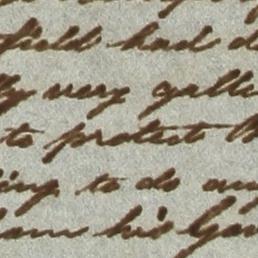 field had d
ly very galla
to protect th
ing to do any
his Gov